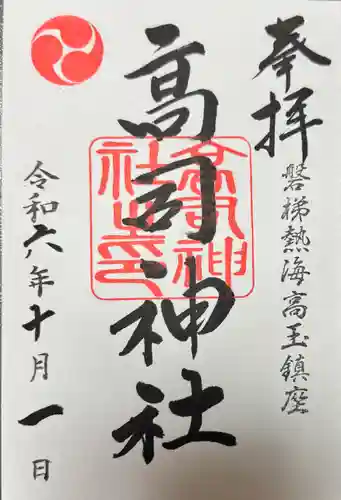 奉拝
磐梯熱海高玉鎮座
高司神社
高司神社之印
令和六年十月一日